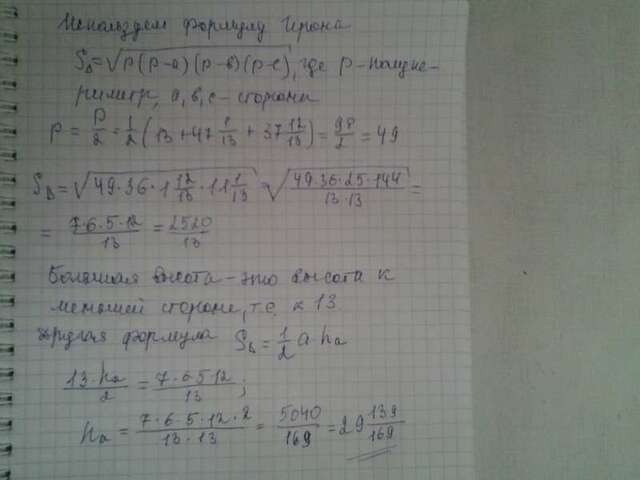 Используем формулу Герона
S_Δ = √(p(p-a)(p-в)(p-c)), где p - полупе-
риметр, а, в, с - стороны
p = P/2 = 1/2 (13 + 47 1/13 + 37 12/13) = 98/2 = 49
S_Δ = √(49·36·1 12/13·11 1/13) = √(49·36·25·144/13·13) =
= 7·6·5·12/13 = 2520/13
Большая высота - это высота к
меньшей стороне, т.е. к 13.
другая формула S_Δ = 1/2 a·hₐ
13·hₐ/2 = 7·6·5·12/13;
hₐ = 7·6·5·12·2/13·13 = 5040/169 = 29 139/169